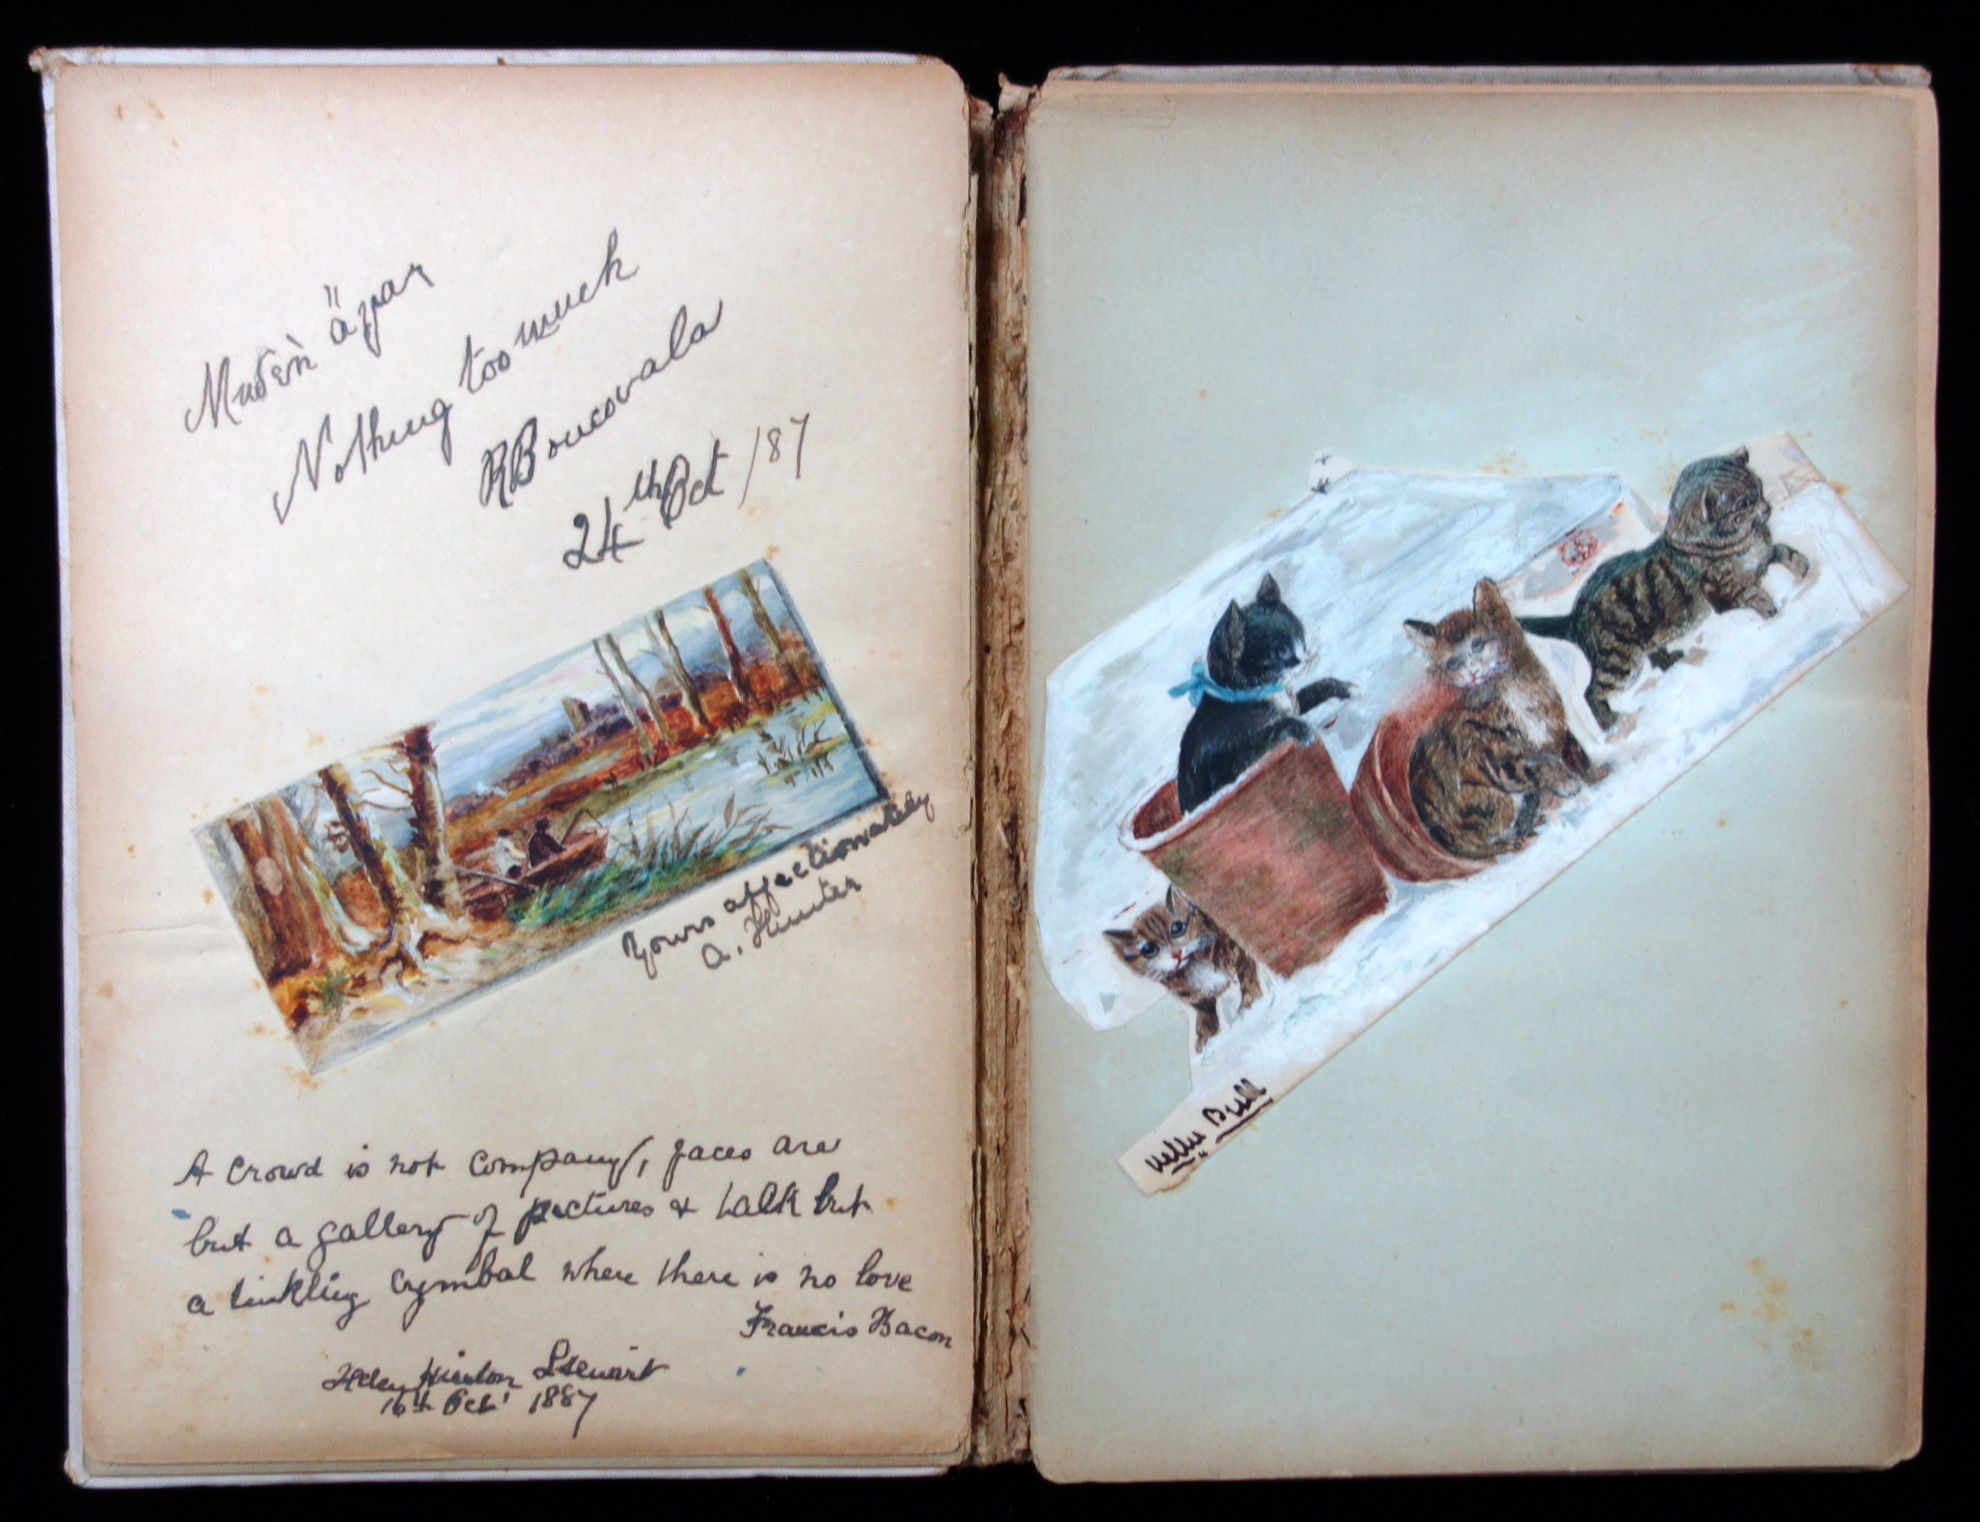 Μηδὲν ἄγαν
Nothing too much
R Boucovala
24th Oct /87
Yours affectionately
A. Hunter
A crowd is not company, faces are
but a gallery of pictures & talk but
a tinkling cymbal where there is no love
Francis Bacon
Hinton Stewart
16th Oct' 1887
Nellie Bull